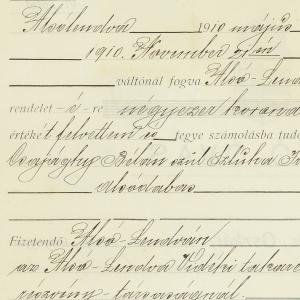 Alsólendva 1910 május
1910. November 9én
váltónál fogva Alsó-Lend
rendelet-é-re négyezer korona
értékét felvettem és tegye számolásba tudo
Csajághy Béláné szül Szluha
alsódabas
Fizetendő Alsó-Lendván
az Alsó-Lendva Vidéki takaré
részvény-társaságnál.